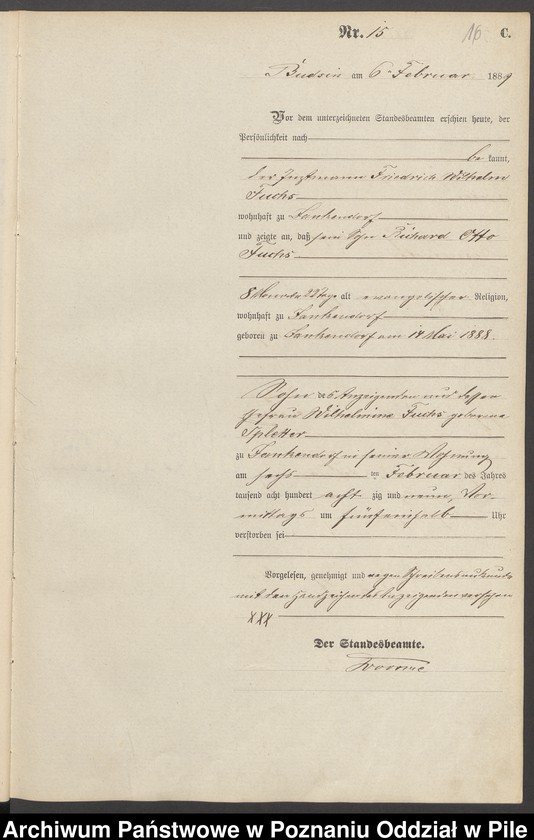 Nr. 15 16 C.
Budsin am 6. Februar 1889
Vor dem unterzeichneten Standesbeamten erschien heute, der
Persönlichkeit nach
be kannt,
der Friedrich Wilhelm
Fuchs
wohnhaft zu Jankendorf
und zeigte an, daß sein Sohn Richard Otto
Fuchs
8 Monate 22 Tage alt evangelischer Religion,
wohnhaft zu Jankendorf
geboren zu Jankendorf am 14 Mai 1888.
Sohn des Anzeigenden und dessen
Ehefrau Wilhelmine Fuchs geborene
Spletter
zu Jankendorf in seiner Wohnung
am sechs ten Februar des Jahres
tausend acht hundert acht zig und neun, Vor-
mittags um fünfeinhalb Uhr
verstorben sei
Vorgelesen, genehmigt und wegen Schreibensunkunde
mit dem Handzeichen des Anzeigenden versehen
XXX
Der Standesbeamte.
Archiwum Państwowe w Poznaniu Oddział w Pile